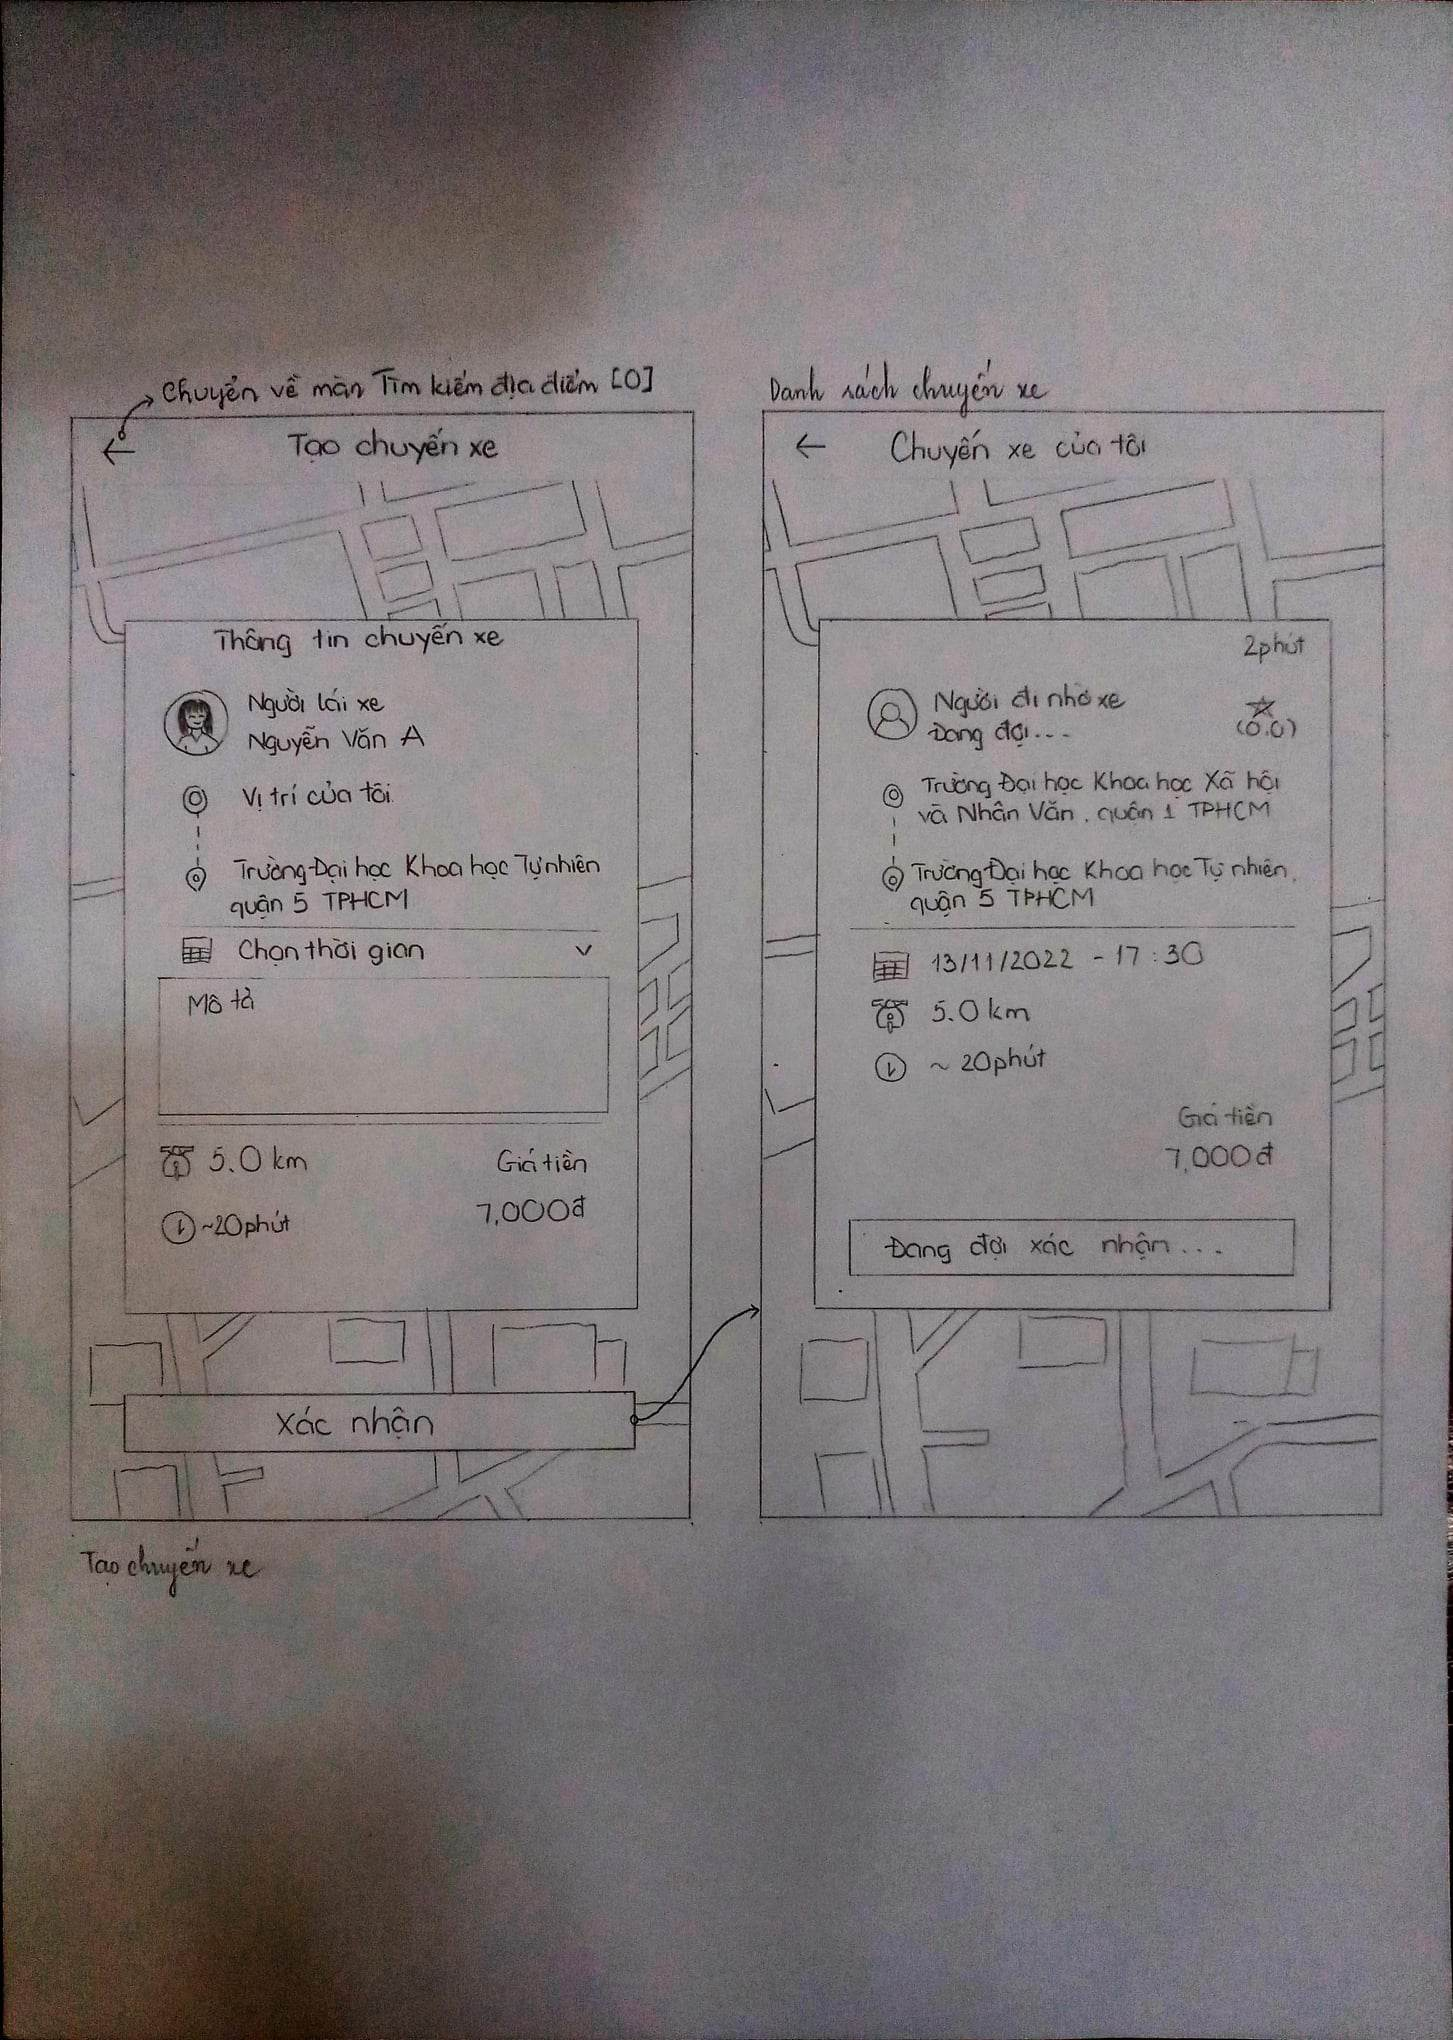 Chuyển về màn Tìm kiếm địa điểm [0]
Tạo chuyến xe
Thông tin chuyến xe
Người lái xe
Nguyễn Văn A
Vị trí của tôi
Trường Đại học Khoa học Tự nhiên
quận 5 TPHCM
Chọn thời gian
Mô tả
5.0 km
Giá tiền
~20phút
7,000đ
Xác nhận
Tạo chuyến xe
Danh sách chuyến xe
Chuyến xe của tôi
2phút
Người đi nhờ xe
Đang đợi...
(0.0)
Trường Đại học Khoa học Xã hội
và Nhân Văn, quận 1 TPHCM
Trường Đại học Khoa học Tự nhiên,
quận 5 TPHCM
13/11/2022 - 17:30
5.0 km
~ 20phút
Giá tiền
7,000đ
Đang đợi xác nhận...